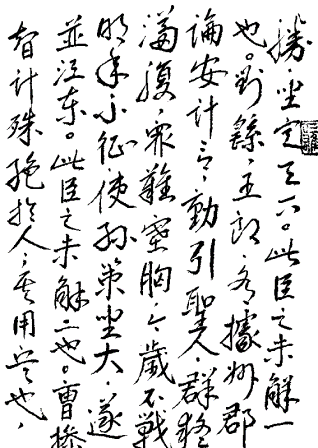 勝，坐定天下。此臣之未解一
也。劉繇、王朗，各據州郡
論安計言，動引聖人，群疑
滿腹，眾難塞胸，今歲不戰
明年不征，使孫策坐大，遂
並江東。此臣之未解二也。曹操
智計殊絕於人，其用兵也，